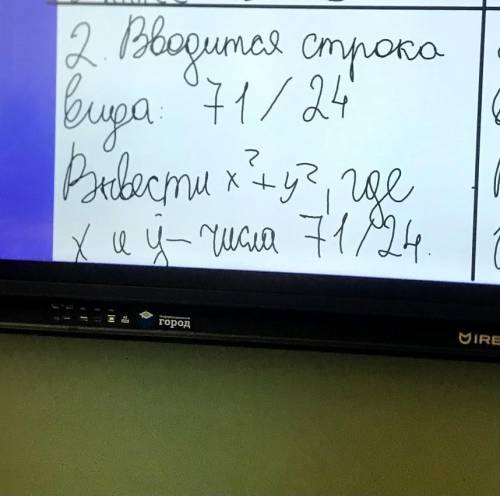 2. Вводится строка
вида: 71/24
Вывести x²+y², где
x и y – числа 71/24.
город
IRE